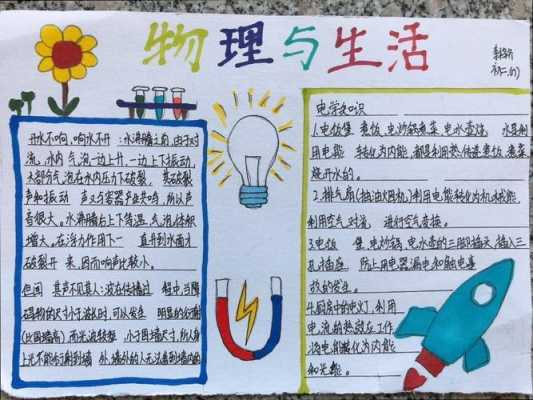 物理与生活
初二.(1)
开水不响,响水不开:水沸腾之前,由于对
流,水内气泡一边上升,一边上下振动,
大部分气泡在水内压力下破裂,其破裂
声和振动声又与容器产生共鸣,所以声
音很大。水沸腾后上下等温,气泡体积
增大,在浮力作用下一直升到水面才
破裂开来,因而响声比较小。
但闻其声不见其人:波在传播过程中,当障
碍物的尺寸小于波长时,可以发生明显的衍射
(比围墙高)而光波较短小于围墙尺寸,所以身上
光不能衍射到墙外,墙外的人无法看到墙内的
电学知识
1.电饭煲煮饭,电炒锅煮菜,电水壶烧水是利
用电能转化为内能,都是利用热传递煮饭,煮菜
烧开水的。
2.排气扇(抽油烟机)利用电能转化为机械能,
利用空气对流进行空气变换。
3.电饭煲,电炒锅,电水壶的三脚插头,插入三
孔插座,防止用电器漏电和触电事
故的发生。
4.厨房中的电灯,利用
电流的热效应工作,
将电能转化为内能
和光能。